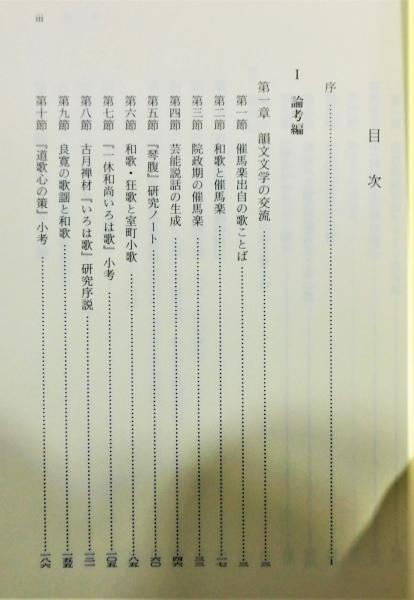 目次
序……………………………1
Ⅰ 論考編
第一章 韻文文学の交流……………………………三
第一節 催馬楽出自の歌ことば……………………………三
第二節 和歌と催馬楽……………………………一七
第三節 院政期の催馬楽……………………………三三
第四節 芸能説話の生成……………………………四六
第五節 『琴腹』研究ノート……………………………六〇
第六節 和歌・狂歌と室町小歌……………………………八五
第七節 『一休和尚いろは歌』小考……………………………一〇五
第八節 古月禅材『いろは歌』研究序説……………………………一三一
第九節 良寛の歌謡と和歌……………………………一五五
第十節 『道歌心の策』小考……………………………一八六
iii